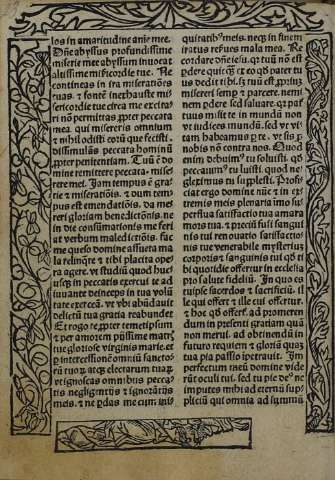 los in amaritudine anime mee.
Dñe abyssus profundissime
miserie mee abyssum inuocat
altissime misericordie tue. Ne
contineas in ira miserationes
tuas: & fonte inexhauste mi-
sericordie tue circa me excita-
ri nõ permittas propter peccata
mea. qui misereris omnium
& nihil odisti eorũ que fecisti.
dissimulãs peccata hominũ
propter penitentiam. Tuũ ē do-
mine remittere peccata. mise
rere mei. Jam tempus ē gra-
tie & miseratiõis. & dum tem-
pus est emendatiõis. da me
reri gloriam benedictõnis. ne
in die consumationis me feri
at verbum maledictõis. fac
me queso domine assueta ma
la relinqre & tibi placita ope
ra agere. vt studiũ quod huc
usq in peccatis exercui te ad
iuuante deinceps in tua volũ
tate exercea. vt vbi abũdauit
delictũ tua gratia reabundet.
Et rogo te propter temetipsum
& per amorem piissime matris
tue gloriose virginis marie. et
p intercessionẽ omniũ sancto-
rũ tuorũ atque electarum tuarum
vt ignoscas omnibus pecca-
tis negligentiis & ignorãtiis
meis. & ne perdas me cum ini-
quitatibus meis. neq in finem
iratus reserues mala mea. Re
cordare dñe iesu. qr tuũ nõ est
perdere quicquã ex eo qd pater tu
us dedit tibi. sed tuũ est proprium
misereri semp & parcere. nemi
nem perdere sed saluare. qr pat
tuus misit te in mundũ non
vt iudices mundũ. sed vt vi-
tam habeamus per te. vt sis pro
nobis non contra nos. Quod
enim debuimus tu soluisti. qd
peccauimus tu luisti. quod ne-
gleximus tu supplesti. Profi-
ciat ergo domine nũc & in ex
tremis meis plenaria imo su
perflua satisfactio tua amara
mors tua. & preciũ fusi sangui
nis tui. renouatio satisfactio-
nis tue venerabile mysteriũ
corporis & sanguinis tui qd ti
bi quotidie offertur in ecclesia
pro salute fideliũ. In quo es
tuipse sacerdos & sacrificiũ. il
le qui offert & ille cui offertur.
& hoc qd offert. ad promeren
dum in presenti gratiam quã
non merui. ad obtinendũ in
futuro requiem & gloriã quam
tua pia passio ipetrauit. Im
perfectum meũ domine vide
rũt oculi tui. sed tu pie deus ne
imputes mihi ad eternũ sup
pliciũ qui omnia ad summũ